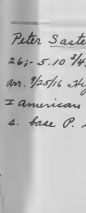 Peter Saste
26;- 5.10 3/4
an. 9/25/16 Hy
I american
s. base P.